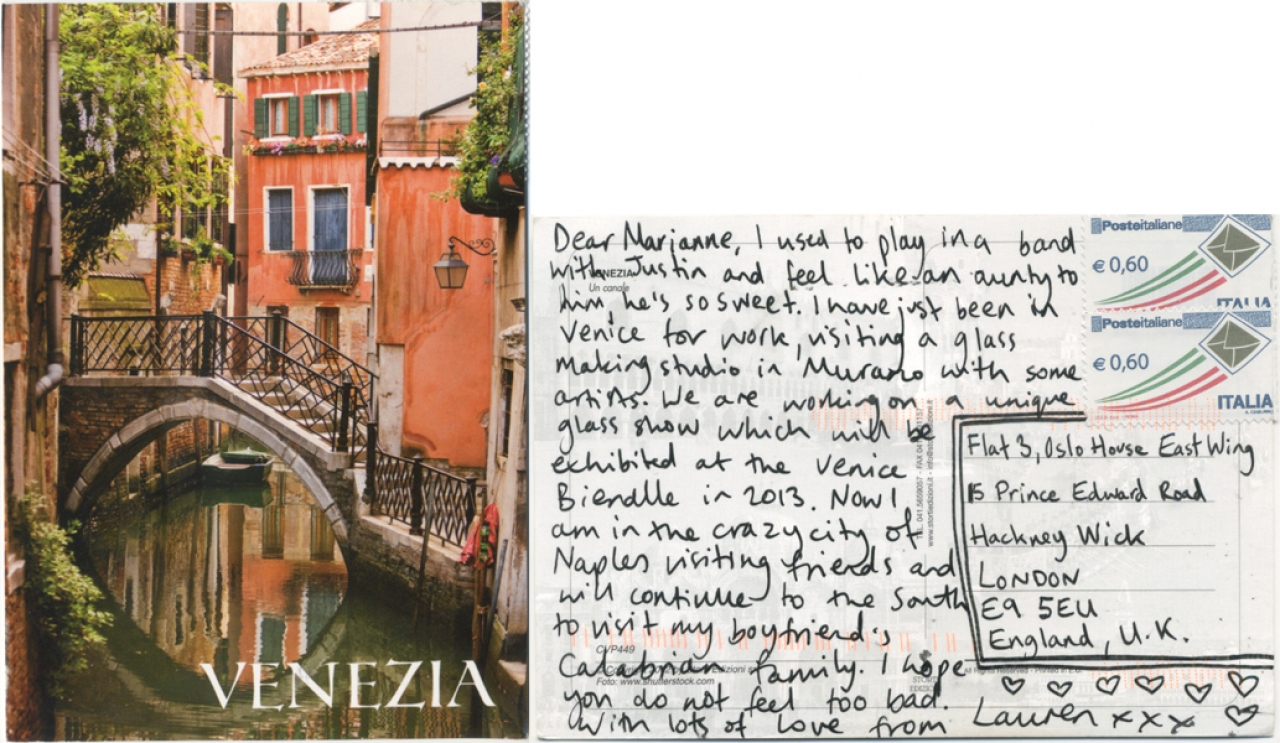 VENEZIA
Dear Marianne, I used to play in a band
with Justin and feel like an aunty to
him, he's so sweet. I have just been in
Venice for work, visiting a glass
making studio in Murano with some
artists. We are working on a unique
glass show which will be
exhibited at the Venice
Biendlle in 2013. Now I
am in the crazy city of
Naples visiting friends and
will continue to the South
to visit my boyfriend's
Calabrian family. I hope
you do not feel too bad.
With lots of love from
Lauren xxx
VENEZIA
Un canale
CVP449
Foto: www.shutterstock.com
www.stortiedizioni.it
Posteitaliane
€ 0,60
ITALIA
Posteitaliane
€ 0,60
ITALIA
Flat 3, Oslo House East Wing
15 Prince Edward Road
Hackney Wick
LONDON
E9 5EU
England, U.K.